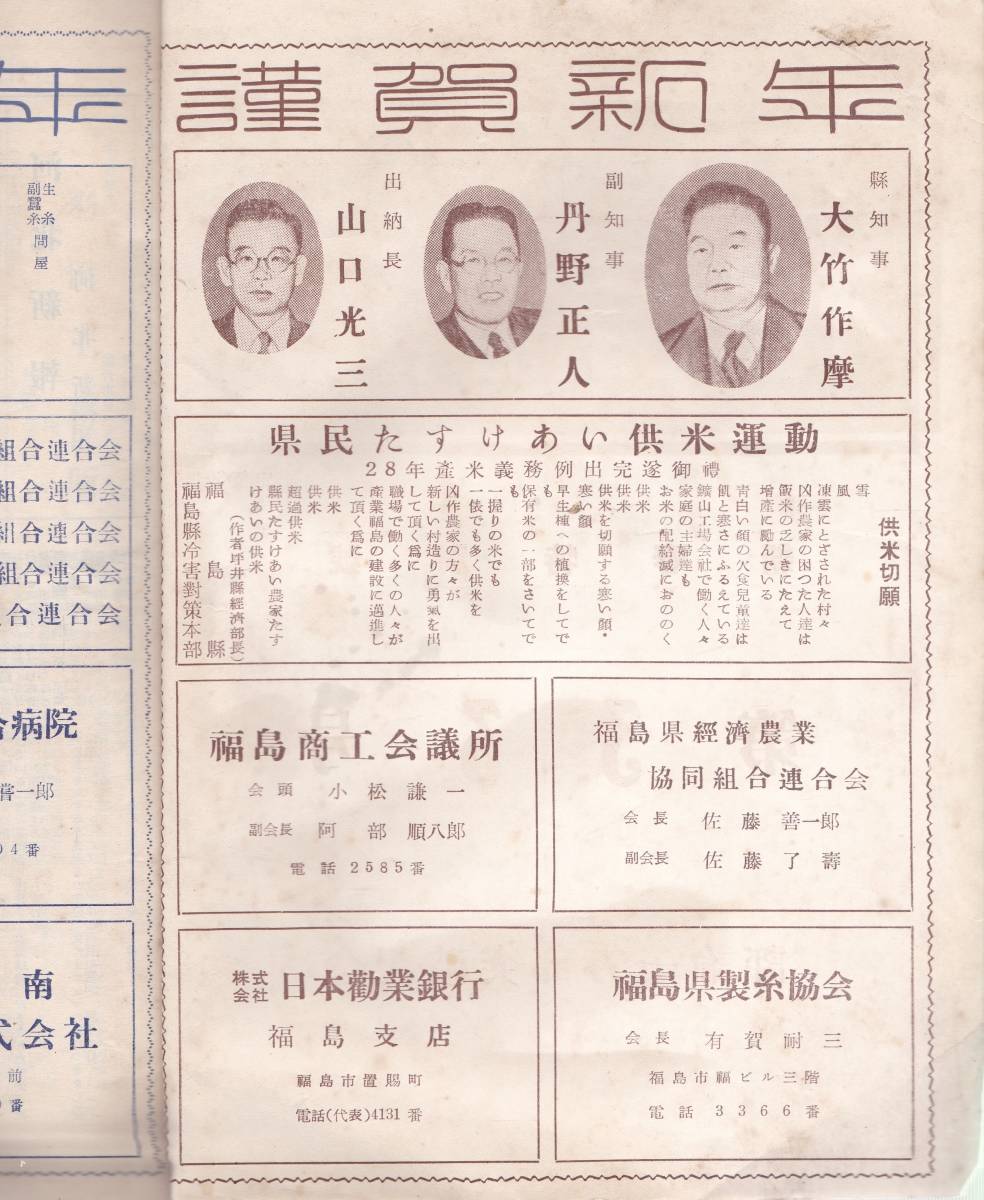 謹賀新年
縣知事
大竹作摩
副知事
丹野正人
出納長
山口光三
県民たすけあい供米運動
28年産米義務例出完遂御禮
供米切願
雪
風
凍雲にとざされた村々
凶作農家の困つた人達は
飯米の乏しきにたえて
増産に励んでいる
靑白い顔の欠食兒童達は
飢と寒さにふるえている
鑛山工場会社で働く人々
家庭の主婦達も
お米の配給減におののく
供米
供米
供米を切願する寒い顔・
寒い顔
早生種への植換をしてで
も
保有米の一部をさいてで
も
一握りの米でも
一俵でも多く供米を
凶作農家の方々が
新しい村造りに勇氣を出
して頂く爲に
職場で働く多くの人々が
産業福島の建設に邁進し
て頂く爲に
供米
供米
超過供米
縣民たすけあい農家たす
けあいの供米
(作者坪井縣經濟部長)
福島縣
福島縣冷害對策本部
福島県經濟農業
協同組合連合会
会長 佐藤善一郎
副会長 佐藤了壽
福島商工会議所
会頭 小松謙一
副会長 阿部順八郎
電話2585番
福島県製糸協会
会長 有賀耐三
福島市福ビル三階
電話3366番
株式会社 日本勸業銀行
福島支店
福島市置賜町
電話(代表)4131番
年
生糸
副蠶糸
問屋
組合連合会
組合連合会
組合連合会
組合連合会
合連合会
合病院
一郎
04番
南
式会社
前
番